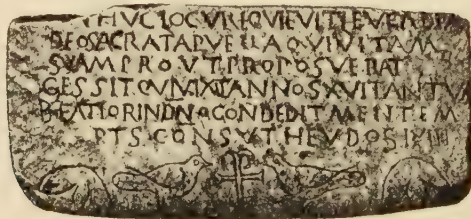 HVC LOCV REQVIEVIT LEVCADIA
DEO SACRATA PVELLA QVI VITAM
SVAM PROVT PROPOSVERAT
GESSIT QVI VIXIT ANNOS XVI TANTV
BEATIOR IN DNO CONDEDIT MENTEM
PTS CONS THEVDOSI XIII